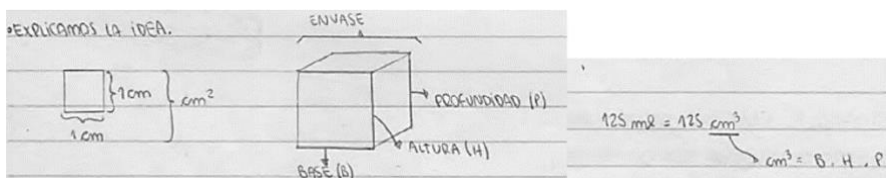 •EXPLICAMOS LA iDEA.
ENVASE
1cm
cm²
1cm
PROFUNDIDAD (P)
ALTURA (H)
BASE (B)
125 ml = 125 cm³
cm³ = B . H . P